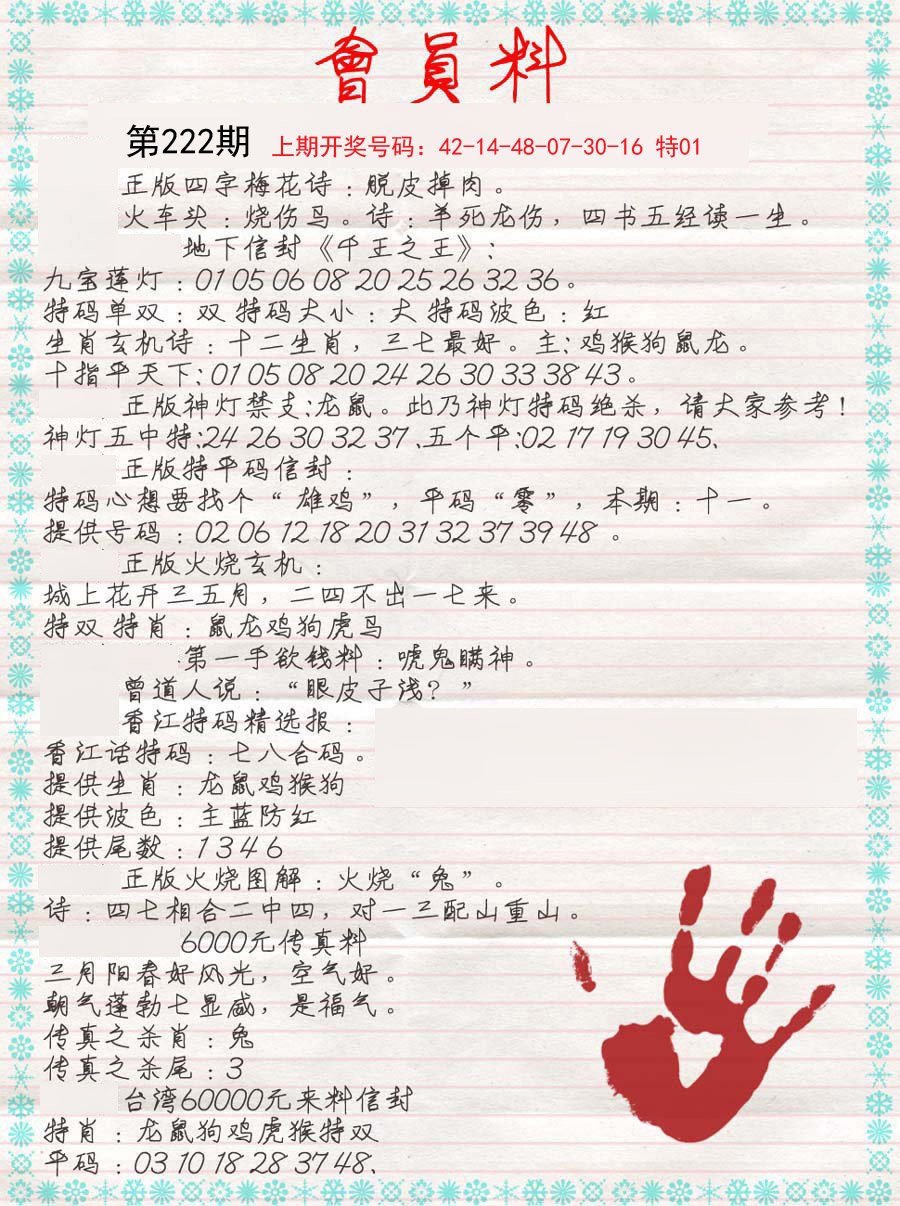 會員料
第222期 上期开奖号码：42-14-48-07-30-16 特01
正版四字梅花诗：脱皮掉肉。
火车头：烧伤鸟。诗：羊死龙伤，四书五经读一生。
地下信封《千王之王》：
九宝莲灯：01 05 06 08 20 25 26 32 36。
特码单双：双 特码大小：大 特码波色：红
生肖玄机诗：十二生肖，三七最好。主：鸡猴狗鼠龙。
十指平天下：01 05 08 20 24 26 30 33 38 43。
正版神灯禁支：龙鼠。此乃神灯特码绝杀，请大家参考！
神灯五中特：24 26 30 32 37、五个平：02 17 19 30 45、
正版特平码信封：
特码心想要找个“雄鸡”，平码“零”，本期：十一。
提供号码：02 06 12 18 20 31 32 37 39 48 。
正版火烧玄机：
城上花开三五月，二四不出一七来。
特双 特肖：鼠龙鸡狗虎鸟
第一手欲钱料：唬鬼瞒神。
曾道人说：“眼皮子浅？”
香江特码精选报：
香江话特码：七八合码。
提供生肖：龙鼠鸡猴狗
提供波色：主蓝防红
提供尾数：1 3 4 6
正版火烧图解：火烧“兔”。
诗：四七相合二中四，对一三配山重山。
6000元传真料
三月阳春好风光，空气好。
朝气蓬勃七显威，是福气。
传真之杀肖：兔
传真之杀尾：3
台湾60000元来料信封
特肖：龙鼠狗鸡虎猴特双
平码：03 10 18 28 37 48、